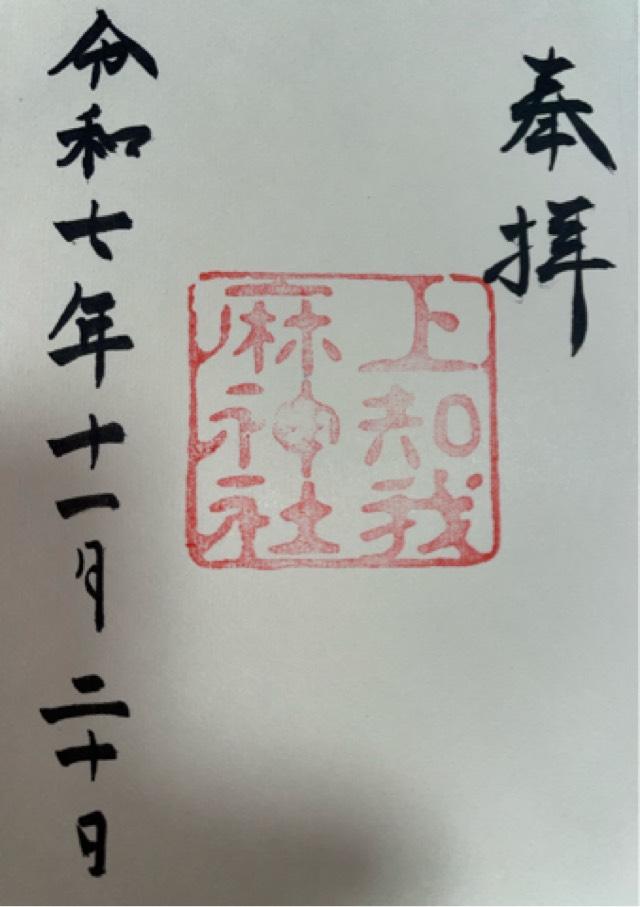 奉拝
上知我
麻神社
令和七年十一月二十日